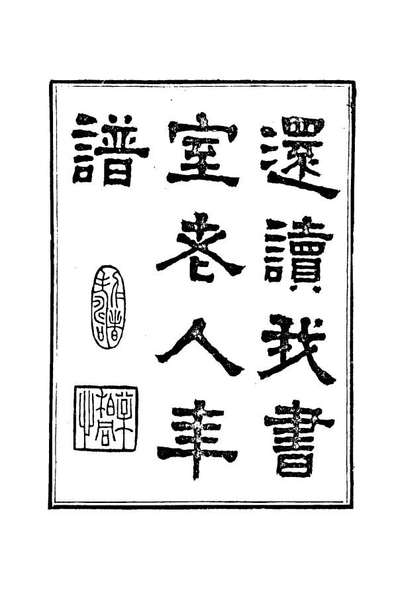 還讀我書
室老人年
譜